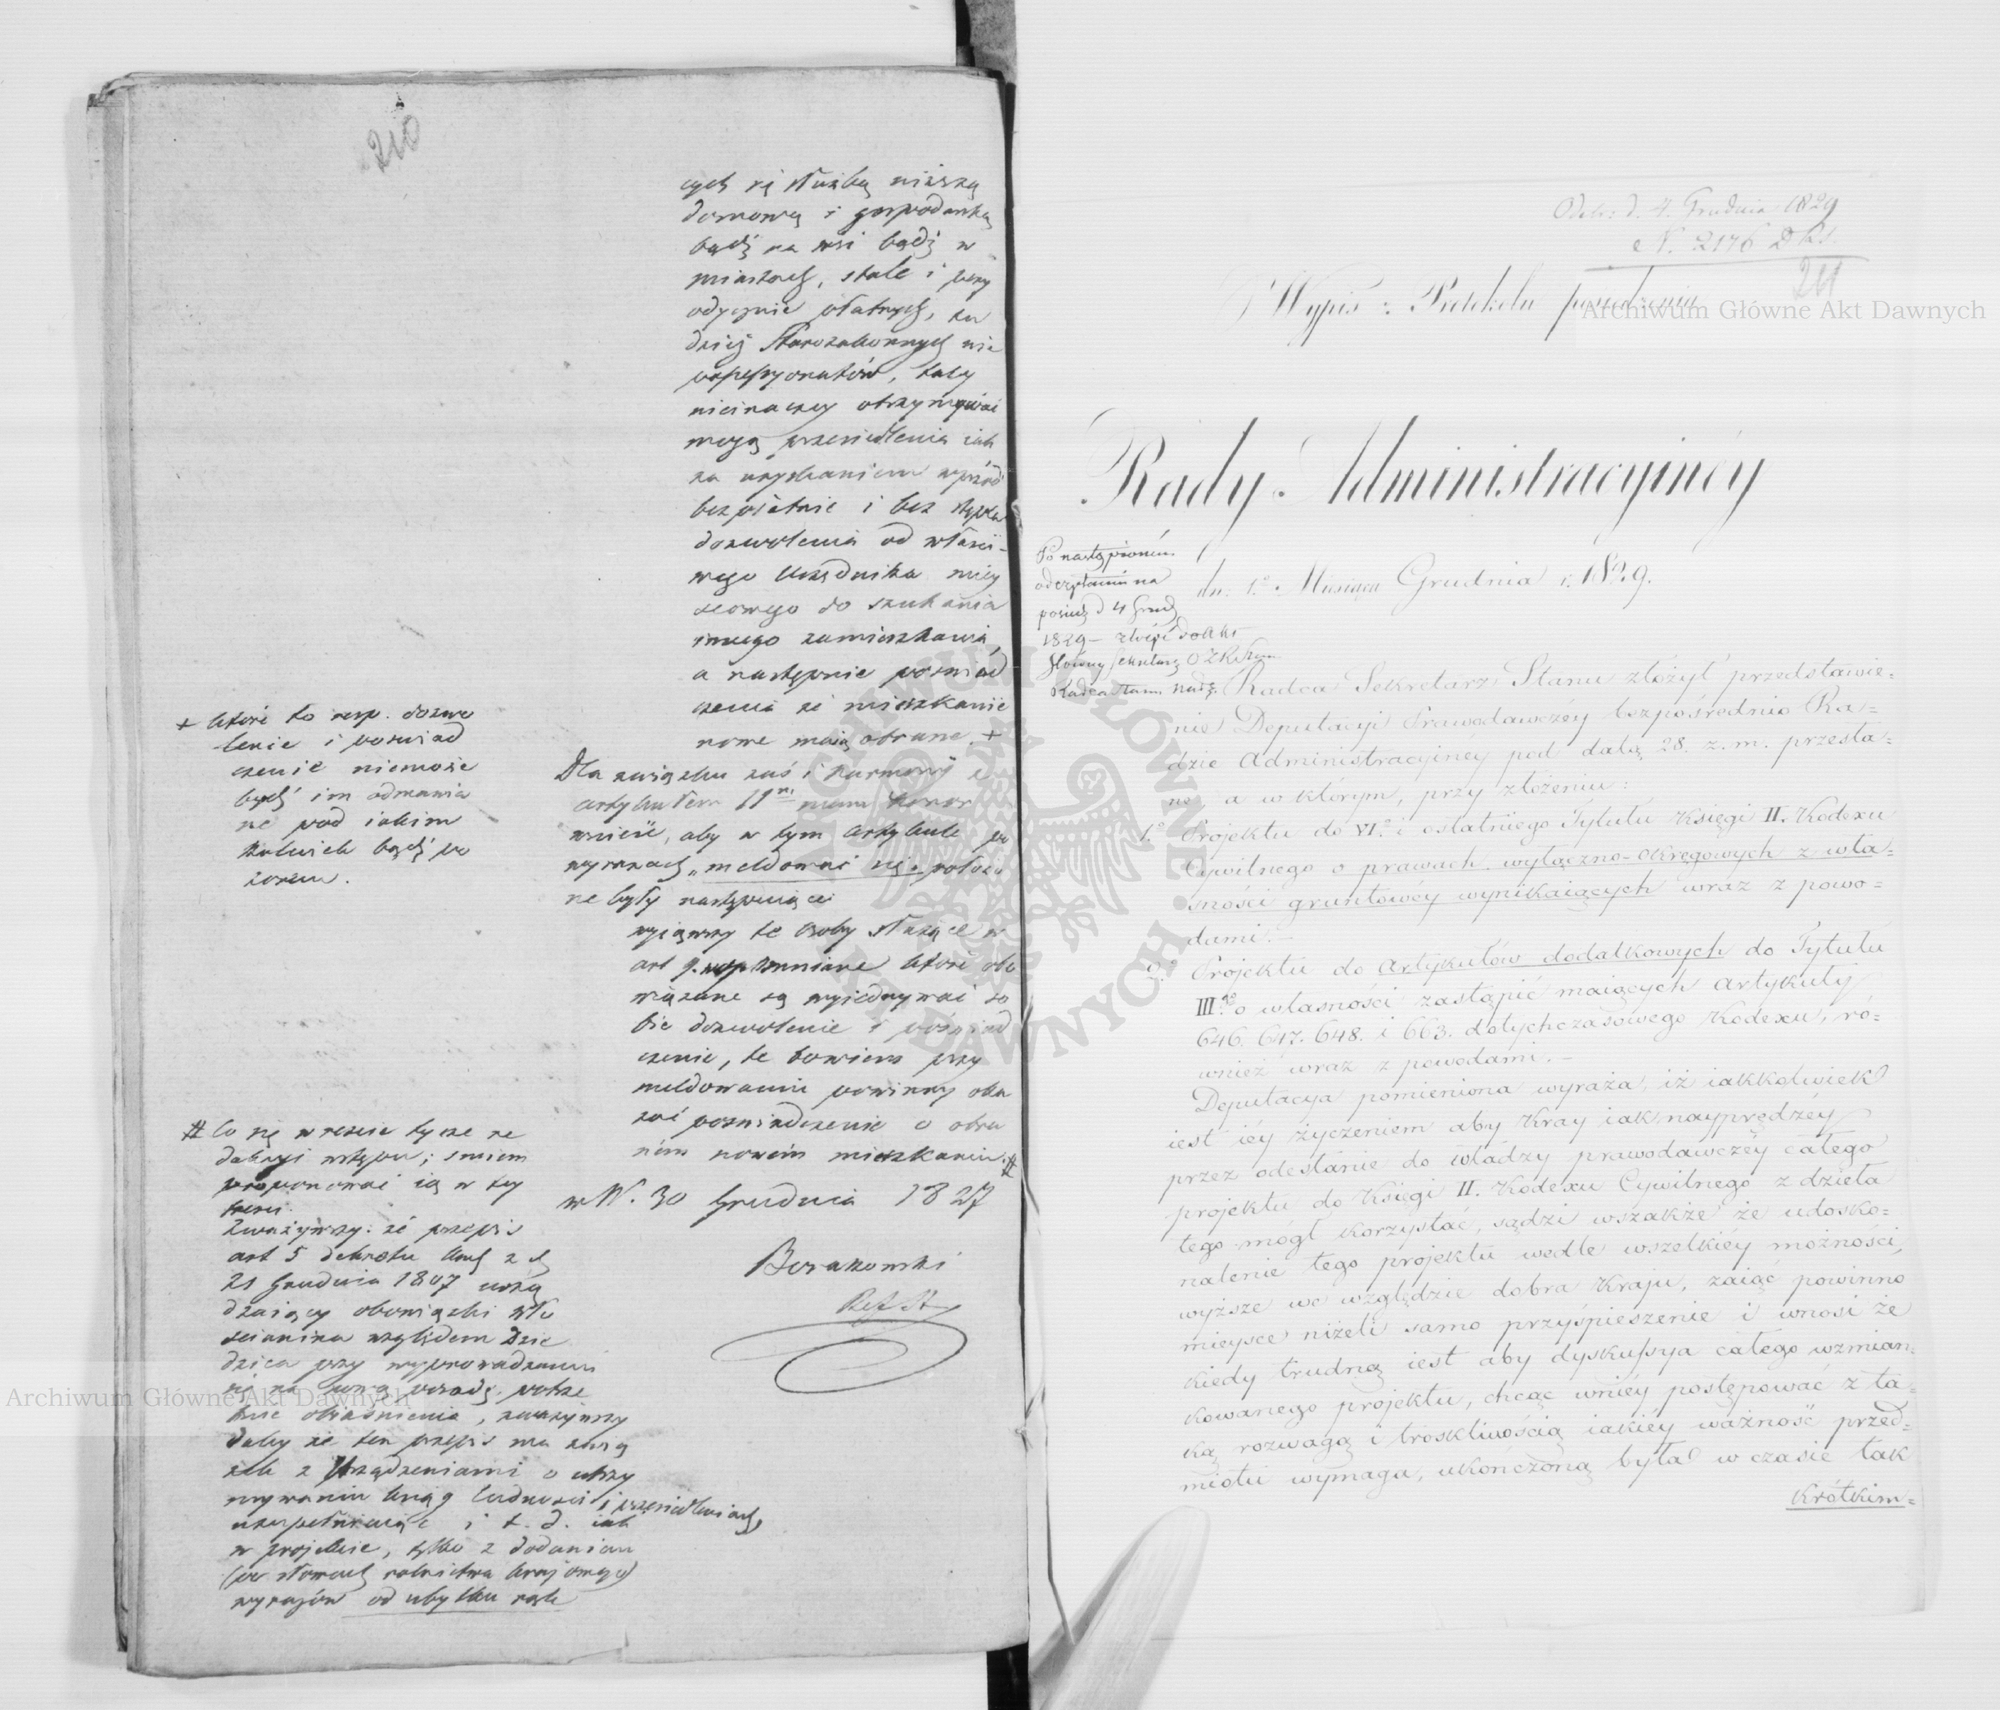 210
cych są służbą niższą
domową i gospodarską
bądź na wsi bądź w
miastach, stale i pery
odycznie płatnych, tu
dzież Starozakonnych nie
possessyonatów, tacy
nieinaczey otrzymywać
mogą przesiedlenia iak
za uzyskaniem wprzód
bezpłatnie i bez stępla
dozwolenia od właści-
wego Urzędnika miey
scowego do szukania
innego zamieszkania,
a następnie poświad
czenia że mieszkanie
nowe maią obrane. +
+ które to resp. dozwo
lenie i poświad
czenie niemoże
bydź im odmawia
ne pod iakim
kolwiek bądź po
zorem.
Dla związku zaś i harmonij z
artykułem 11m. mam honor
wnieść, aby w tym artykule po
wyrazach „meldować się„ położo
ne były następuiące:
wyiąwszy te osoby służące w
art 9. wspomniane które obo
wiązane są wyiednywać so
bie dozwolenie i poświad
czenie, te bowiem przy
meldowaniu powinny oka
zać poświadczenie o obra
ném nowém mieszkaniu. #
w W. 30 Grudnia 1827
Borakowski
Ref St
# Co się wreszcie tycze re
dakcyi wstępu; smiem
proponować ią w tey
treści.
Zważywszy że przepis
art 5 dekretu Król z d
21 Grudnia 1807 urzą
dzaiący obowiązki wło
scianina względem Dzie
dzica przy wyprowadzaniu
się na inną posadę, potrze
buie obiaśnienia, zważywszy
daley że ten przepis ma zwią
zek z Urządzeniami o utrzy
mywaniu ksiąg ludności i przesiedleniach,
uzupełniaiąc i t. d. iak
w projekcie, tylko z dodaniem
(po słowach rolnictwa krajowego)
wyrazów od ubytku rąk
Odeb: d. 4. Grudnia 1829
N. 2176 DKS.
211
Wypis z Protokołu posiedzenia
Rady Administracyiney
dn: 1o. Miesiąca Grudnia r. 1829.
Po nastąpioném
odczytaniu na
posiedz d 4 Grud
1829 – złożyć do Akt
Radca Stanu
Radca Sekretarz Stanu złożył przedstawie=
nie Deputacyi Prawodawczéy bezpośrednio Ra=
dzie Administracyinéy pod datą 28. z. m. przesła=
ne, a w którym, przy złożeniu:
1.o Projektu do VI.o i ostatniego Tytułu Księgi II. Kodexu
Cywilnego o prawach wyłączno-okręgowych z wła=
sności gruntowéy wynikaiących wraz z powo=
dami.–
2.o Projektu do Artykułów dodatkowych do Tytułu
III.go o własności zastąpić maiących Artykuły
646. 647. 648. i 663. dotychczasowego Kodexu, ró=
wnież wraz z powodami.–
Deputacya pomieniona wyraża, iż iakkolwiek
iest iéy życzeniem aby Kray iak nayprędzéy
przez odesłanie do władzy prawodawczéy całego
projektu do Księgi II. Kodexu Cywilnego z dzieła
tego mógł korzystać, sądzi wszakże że udosko=
nalenie tego projektu wedle wszelkiéy możności,
wyższe we względzie dobra Kraju, zaiąć powinno
mieysce niżeli samo przyśpieszenie i wnosi że
kiedy trudną iest aby dyskussya całego wzmian=
kowanego projektu, chcąc wniéy postępować z ta=
ką rozwagą i troskliwością iakiéy ważność przed=
miotu wymaga, ukończoną była w czasie tak
krótkim=
Archiwum Główne Akt Dawnych
Archiwum Główne Akt Dawnych
ARCHIWUM GŁÓWNE AKT DAWNYCH